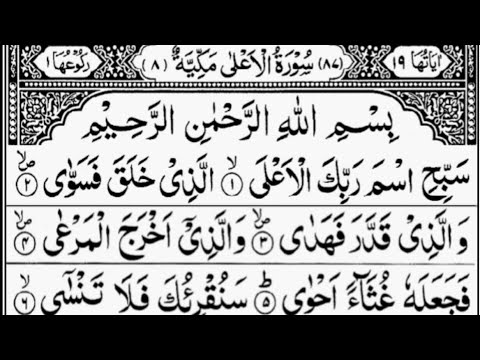 اٰیَاتُهَا ١٩ (٨٧) سُوْرَةُ الْاَعْلٰى مَكِّيَّةٌ (٨) رُكُوْعُهَا ١
بِسْمِ اللّٰهِ الرَّحْمٰنِ الرَّحِيْمِ
سَبِّحِ اسْمَ رَبِّكَ الْاَعْلَى ۙ‏﴿۱﴾ الَّذِىْ خَلَقَ فَسَوّٰى ۪ۙ‏﴿۲﴾
وَ الَّذِىْ قَدَّرَ فَهَدٰى ۪ۙ‏﴿۳﴾ وَالَّذِىْۤ اَخْرَجَ الْمَرْعٰى ۪ۙ‏﴿۴﴾
فَجَعَلَهٗ غُثَآءً اَحْوٰى ؕ‏﴿۵﴾ سَنُقْرِئُكَ فَلَا تَنْسٰٓى ۙ‏﴿۶﴾